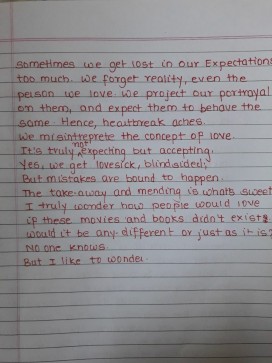 sometimes we get lost in our Expectations
too much. We forget reality, even the
person we love. We project our portrayal
on them, and expect them to behave the
same. Hence, heartbreak aches.
We misintreprete the concept of love.
It's truly not expecting but accepting.
Yes, we get lovesick, blindsided,
But mistakes are bound to happen.
The take-away and mending is whats sweet
I truly wonder how people would love
if these movies and books didn't exists
would it be any different or just as it is?
No one knows.
But I like to wonder.